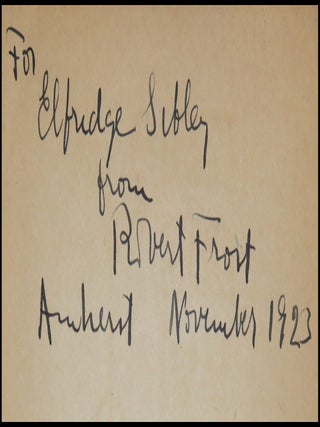 For
Elfridge Sibley
from
Robert Frost
Amherst November 1923